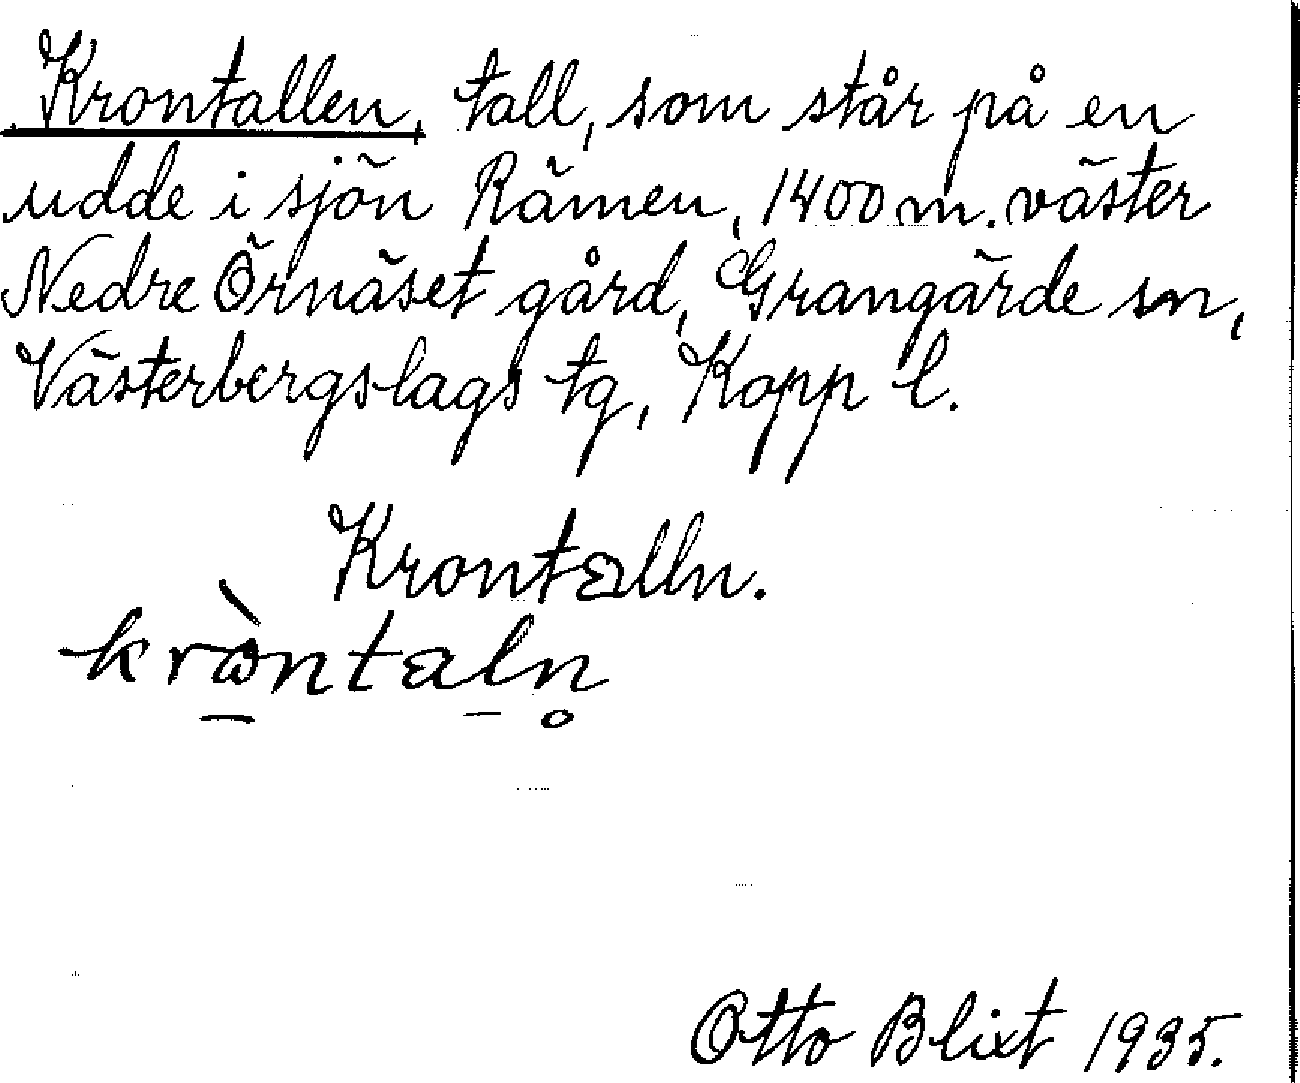 Krontallen, tall, som står på en
udde i sjön Rämen, 1400 m. väster
Nedre Örnäset gård, Grangärde sn,
Västerbergslags tg, Kopp l.
Krontalln.
krὼ̱ntaḻn̥
Otto Blixt 1935.